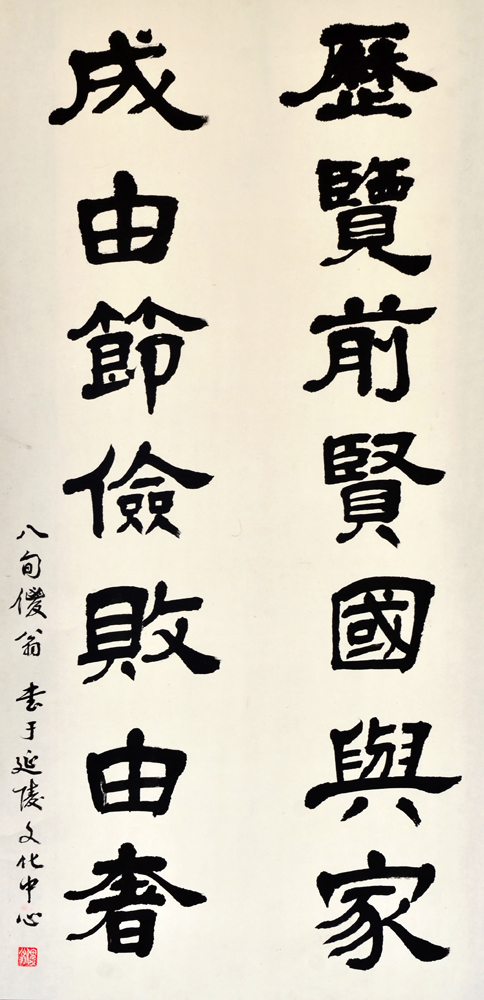 歷覽前賢國與家
成由節儉敗由奢
八旬儍翁 书于延陵文化中心